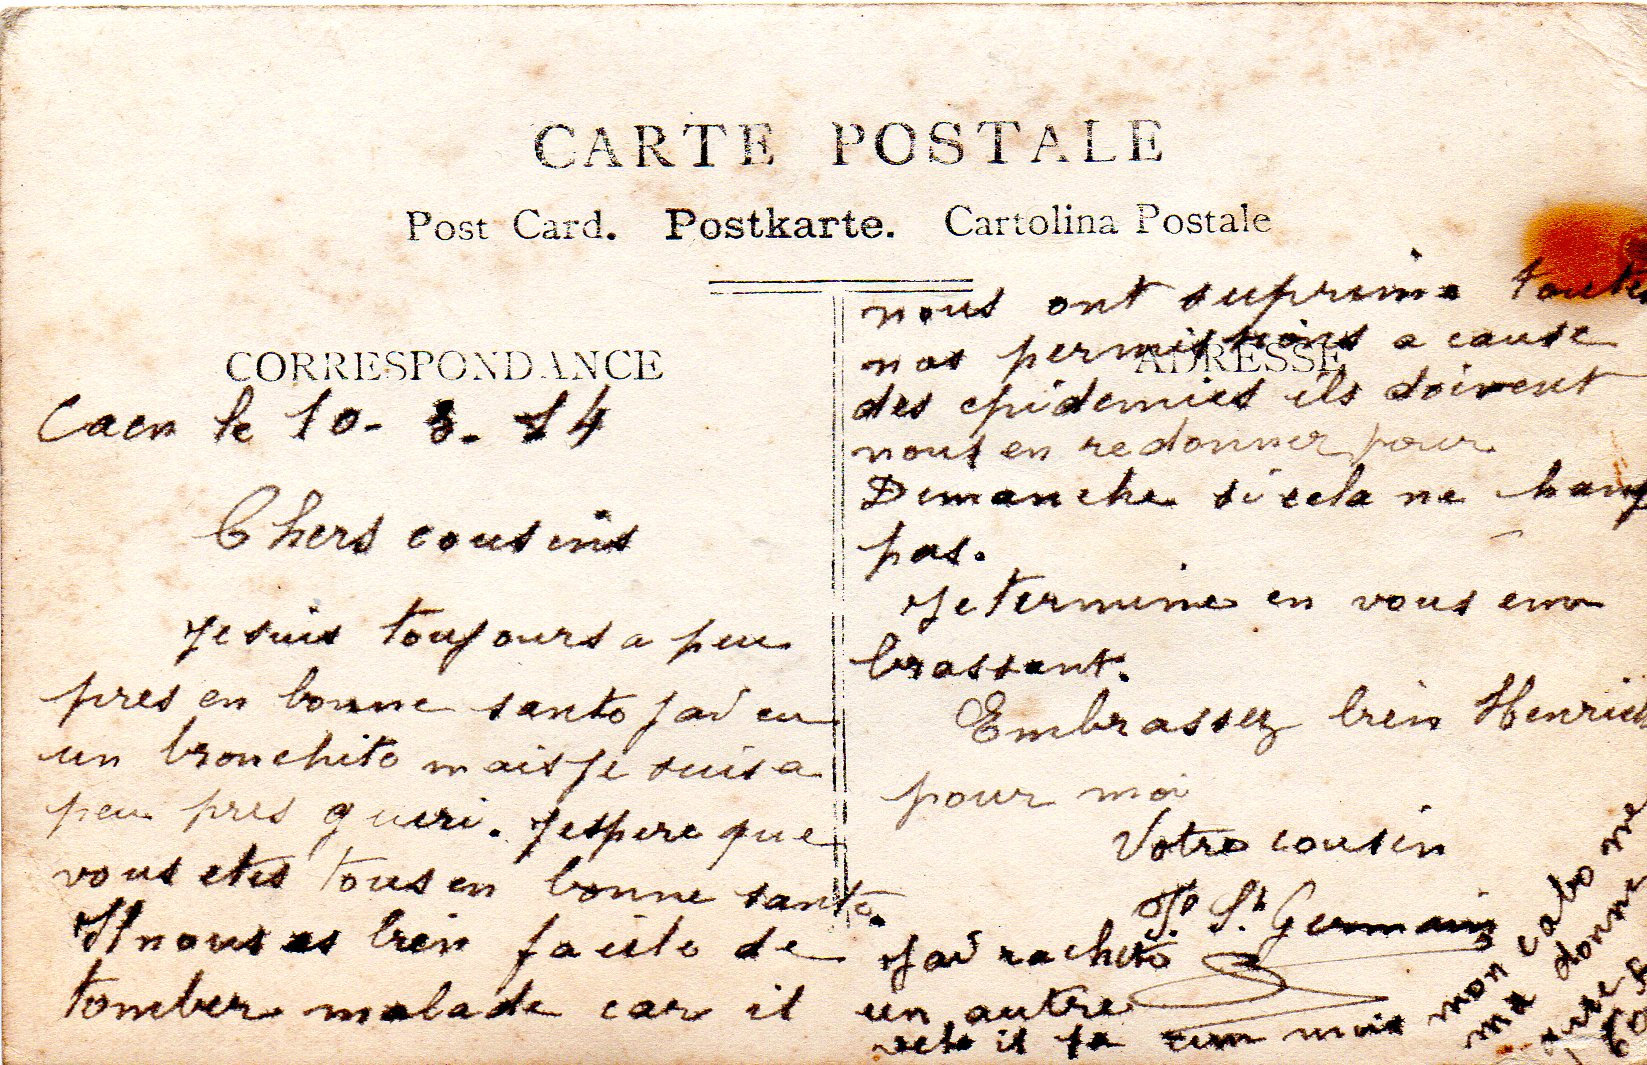 CARTE POSTALE
Post Card. Postkarte. Cartolina Postale
CORRESPONDANCE
Caen le 10. 3. 14
Chers cousins
Je suis toujours a peu
pres en bonne sante jai eu
un bronchite mais je suis a
peu pres gueri. Jespere que
vous etes tous en bonne sante.
Il nous es bien facile de
tomber malade car il
ADRESSE
nous ont suprimé toutes
nos permissions a cause
des epidemies ils doivent
nous en redonner pour
Dimanche si cela ne
pas.
Je termine en vous em
brassant.
Embrassez bien
pour moi
Votre cousin
St Germain
Jai rachete
un autre
velo il ya un mois mon cabo me
ma donne